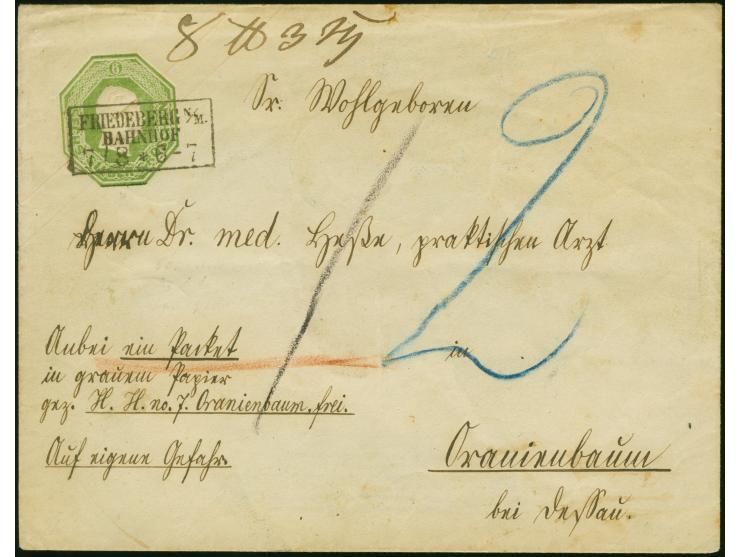 8 ℔ 3
6
FRIEDEBERG N/M.
BAHNHOF
7 8 * 6-7
Sr. Wohlgeboren
Herrn Dr. med. Heße, praktischen Arzt
12
Anbei ein Packet
in
in grauem Papier
gez. H. H. no. 7. Oranienbaum. frei.
Auf eigene Gefahr.
Oranienbaum
bei Dessau.